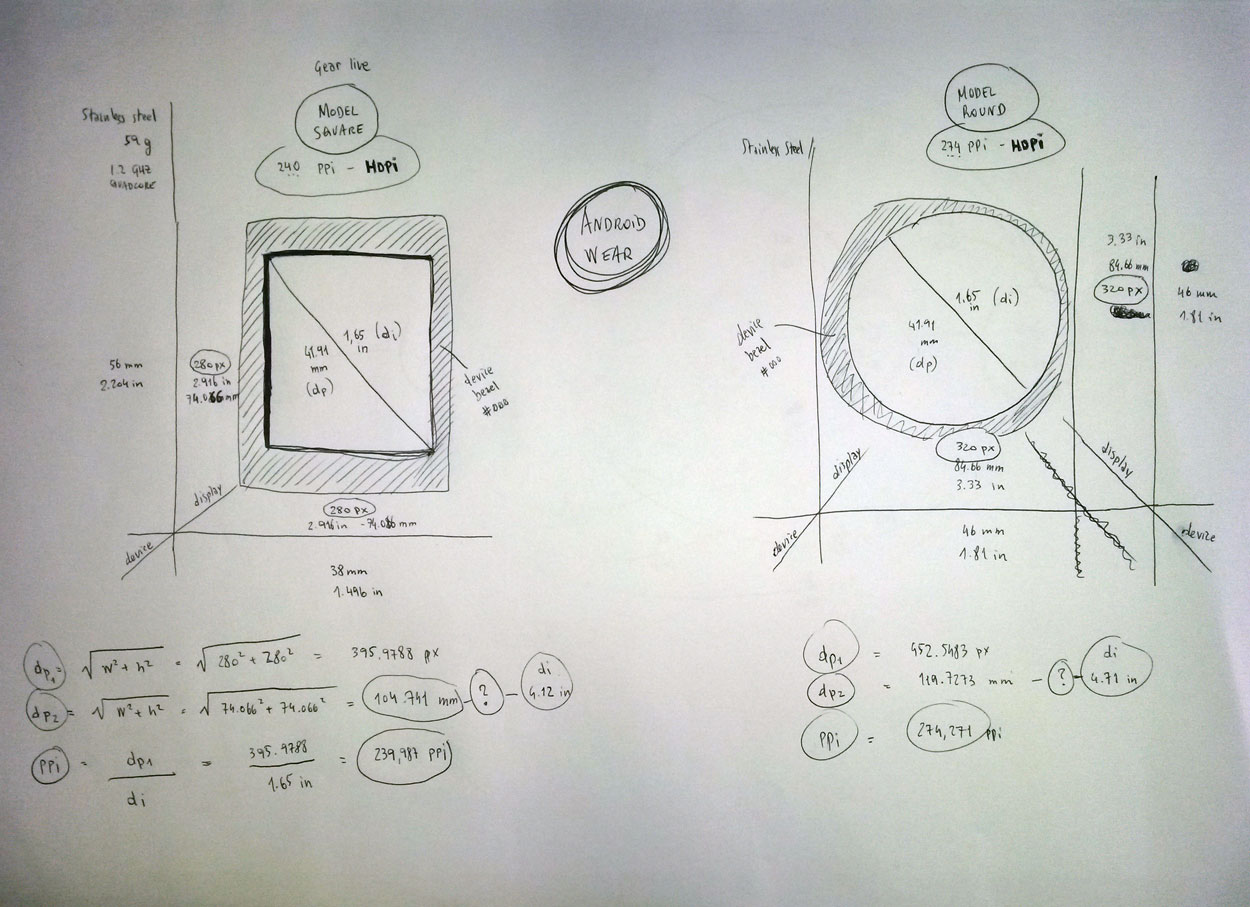 Gear live
MODEL
SQUARE
240 PPi - HDPi
Stainless steel
59 g
1.2 GHZ
QUADCORE
56 mm
2.204 in
280 px
2.916 in
74.066 mm
1,65 (di)
in
41.91
mm
(dp)
device
bezel
#000
display
device
280 px
2.916 in - 74.066 mm
38 mm
1.496 in
ANDROID
WEAR
MODEL
ROUND
274 PPi - HDPi
Stainless Steel
3.33 in
84.66 mm
320 px
46 mm
1.81 in
1.65 (di)
in
41.91
mm
(dp)
device
bezel
#000
320 px
84.66 mm
3.33 in
display
device
display
device
46 mm
1.81 in
dp1 = √w²+h² = √280²+280² = 395.9788 px
dp2 = √w²+h² = √74.066²+74.066² = 104.741 mm - ? - di 4.12 in
PPi = dp1 / di = 395.9788 / 1.65 in = 239,987 PPi
dp1 = 452.5483 px
dp2 = 119.7273 mm - ? - di 4.71 in
PPi = 274,271 PPi